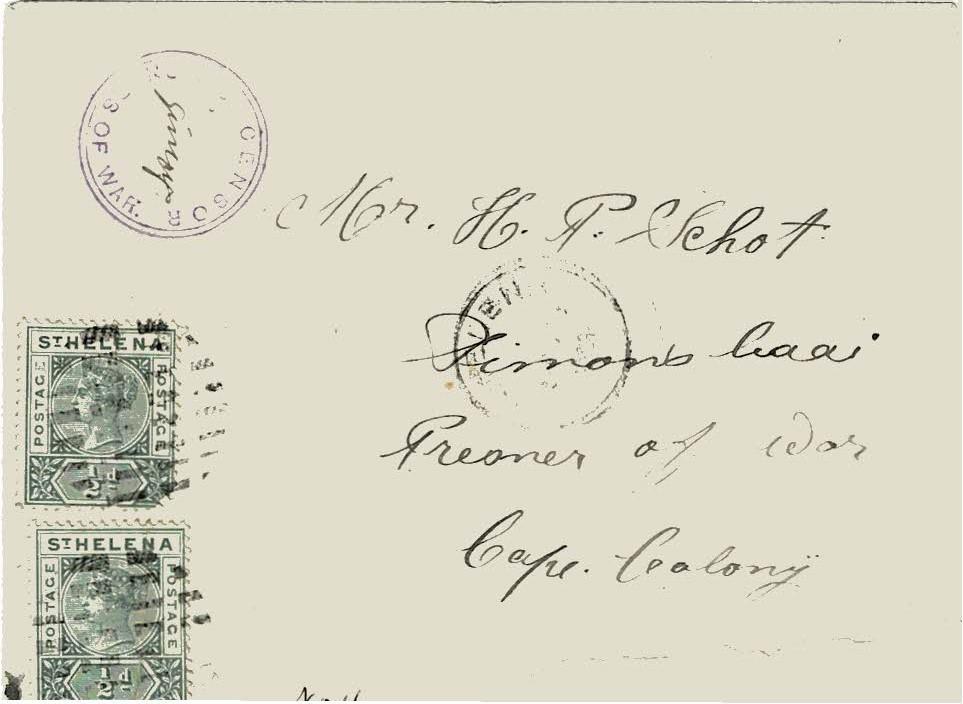 CENSOR
S OF WAR.
Mr. H. P. Schot
Simons baai
Preoner of War
Cape. Colony
HELEN
ST HELENA
POSTAGE
POSTAGE
½d
ST HELENA
POSTAGE
POSTAGE
½d